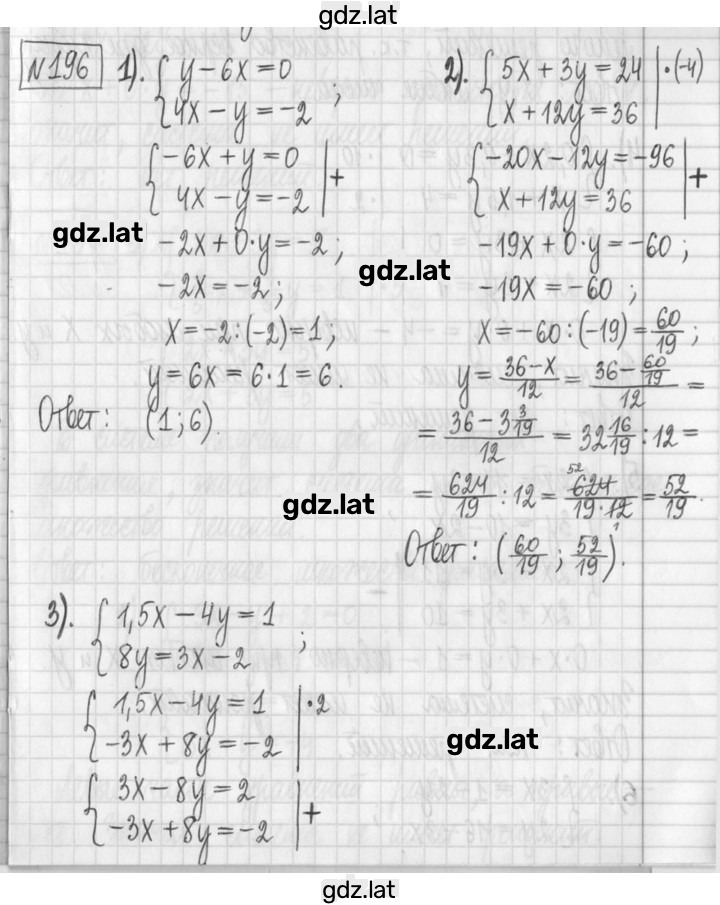 gdz.lat
№196 1). { y − 6x = 0
4x − y = −2 ;
{ −6x + y = 0
4x − y = −2 | +
gdz.lat
−2x + 0·y = −2 ;
−2x = −2 ;
x = −2 : (−2) = 1 ;
y = 6x = 6·1 = 6.
Ответ: (1 ; 6).
2). { 5x + 3y = 24 | ·(−4)
x + 12y = 36
{ −20x − 12y = −96
x + 12y = 36 | +
gdz.lat
−19x + 0·y = −60 ;
−19x = −60 ;
x = −60 : (−19) = 60/19 ;
y = (36 − x)/12 = (36 − 60/19)/12 =
= (36 − 3 3/19)/12 = 32 16/19 : 12 =
gdz.lat
= 624/19 : 12 = 624 52/19·12 1 = 52/19.
Ответ: (60/19 ; 52/19).
3). { 1,5x − 4y = 1
8y = 3x − 2 ;
{ 1,5x − 4y = 1 | ·2
−3x + 8y = −2
gdz.lat
{ 3x − 8y = 2
−3x + 8y = −2 | +
gdz.lat